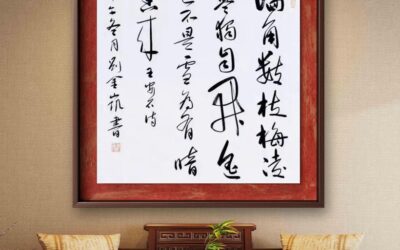 墙角數枝梅凌
寒獨自開遥
知不是雪為有暗
香来王安石诗
冬月刘金凯書